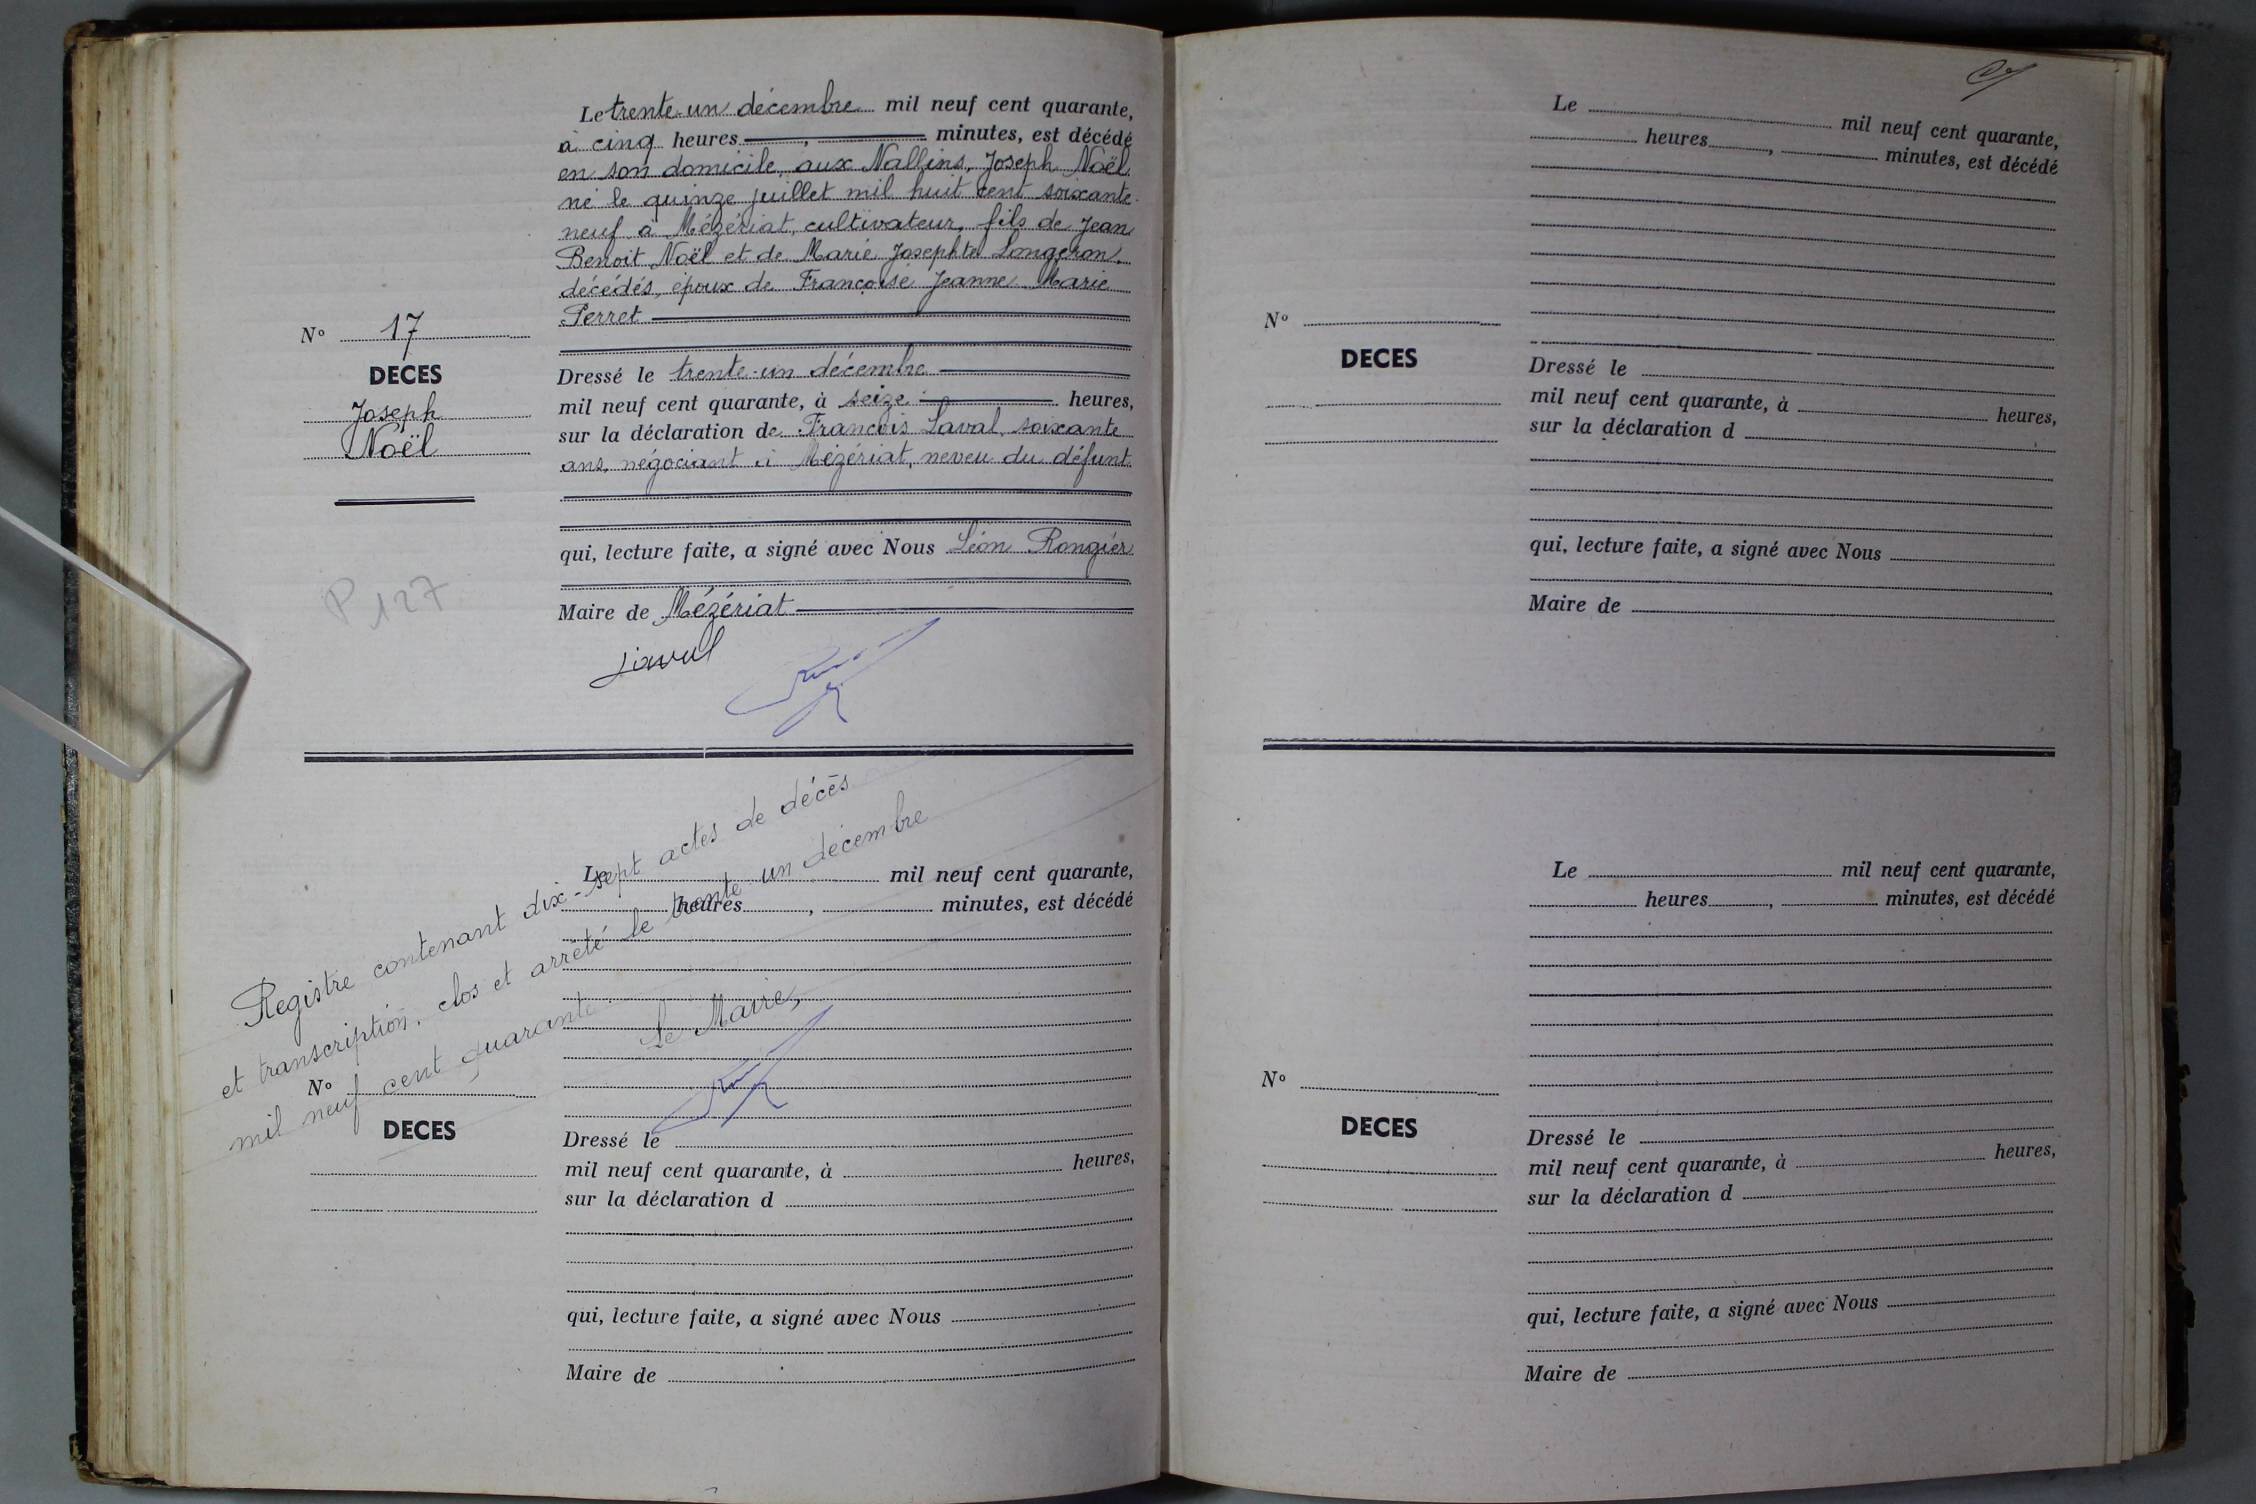 Le trente-un décembre mil neuf cent quarante,
à cinq heures , minutes, est décédé
en son domicile, aux Nallins, Joseph Noël
né le quinze juillet mil huit cent soixante-
neuf à Mézériat, cultivateur, fils de Jean
Benoit Noël et de Marie Josephte Longeron,
décédés, époux de Françoise Jeanne Marie
Perret
N° 17
DECES
Joseph
Noël
Dressé le trente-un décembre
mil neuf cent quarante, à seize heures,
sur la déclaration de François Laval, soixante
ans, négociant à Mézériat, neveu du défunt
qui, lecture faite, a signé avec Nous Léon Rongier
Maire de Mézériat
P 127
Laval
Registre contenant dix-sept actes de décès
et transcription, clos et arrêté le trente un décembre
mil neuf cent quarante.
Le Maire,
Le mil neuf cent quarante,
heures , minutes, est décédé
N°
DECES
Dressé le
mil neuf cent quarante, à heures,
sur la déclaration d
qui, lecture faite, a signé avec Nous
Maire de
Le mil neuf cent quarante,
heures , minutes, est décédé
N°
DECES
Dressé le
mil neuf cent quarante, à heures,
sur la déclaration d
qui, lecture faite, a signé avec Nous
Maire de
Le mil neuf cent quarante,
heures , minutes, est décédé
N°
DECES
Dressé le
mil neuf cent quarante, à heures,
sur la déclaration d
qui, lecture faite, a signé avec Nous
Maire de